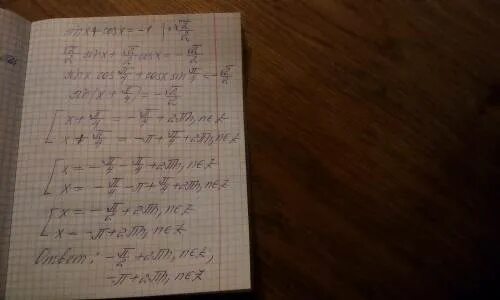 sin x + cos x = -1 | · √2/2
√2/2 sin x + √2/2 cos x = -√2/2
sin x cos π/4 + cos x sin π/4 = -√2/2
sin(x + π/4) = -√2/2
[ x + π/4 = -π/4 + 2πn, n∈Z
x + π/4 = -π + π/4 + 2πn, n∈Z
[ x = -π/4 - π/4 + 2πn, n∈Z
x = -π/4 - π + π/4 + 2πn, n∈Z
[ x = -π/2 + 2πn, n∈Z
x = -π + 2πn, n∈Z
Ответ: -π/2 + 2πn, n∈Z,
-π + 2πn, n∈Z